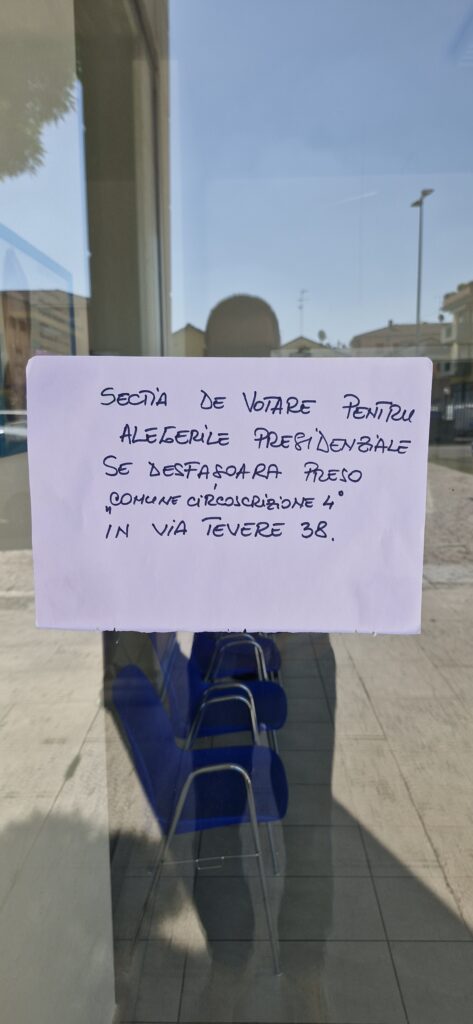 SECTIA DE VOTARE PENTRU
ALEGERILE PRESIDENZIALE
SE DESFASOARA PRESO
„COMUNE CIRCOSCRIZIONE 4"
IN VIA TEVERE 38.